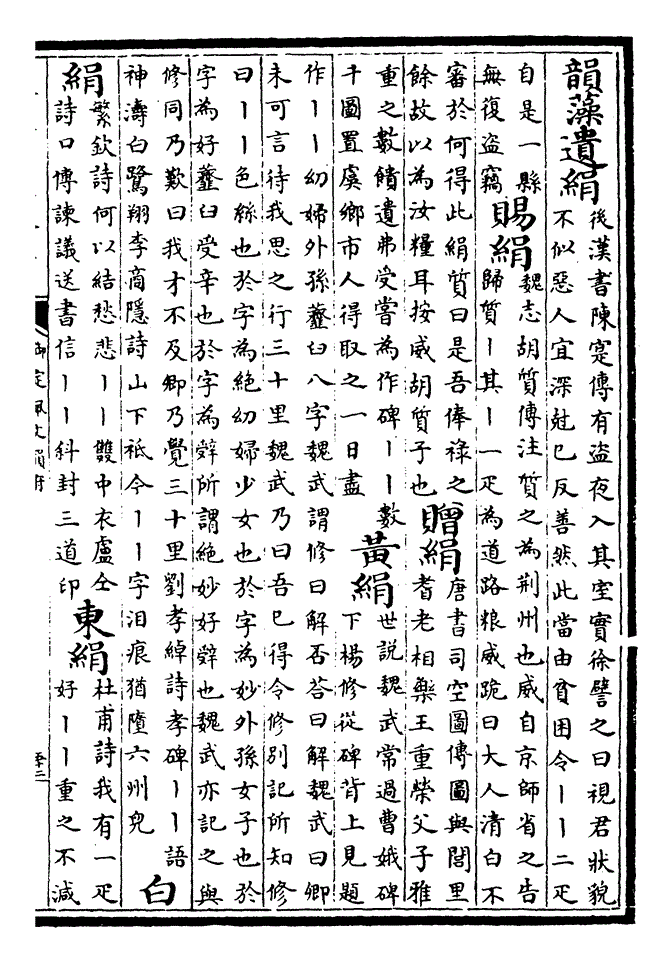 韻藻遺絹後漢書陳寔傳有盜夜入其室實徐譬之曰視君狀貌
不似惡人宜深尅已反善然此當由貧困令丨丨二疋
自是一縣
無復盜竊
賜絹魏志胡質傳注質之為荆州也威自京師省之告
歸質丨其丨一疋為道路粮威跪曰大人清白不
審於何得此絹質曰是吾俸祿之
餘故以為汝糧耳按威胡質子也
贈絹唐書司空圖傳圖與閭里
耆老相樂王重榮父子雅
重之數饋遺弗受嘗為作碑丨丨數
千圖置虞鄉市人得取之一日盡
黃絹世説魏武常過曹娥碑
下楊修從碑背上見題
作丨丨幼婦外孫虀臼八字魏武謂修曰解否荅曰解魏武曰卿
未可言待我思之行三十里魏武乃曰吾已得令修別記所知修
曰丨丨色絲也於字為絶幼婦少女也於字為妙外孫女子也於
字為好虀臼受辛也於字為辤所謂絶妙好辤也魏武亦記之與
修同乃歎曰我才不及卿乃覺三十里劉孝綽詩孝碑丨丨語
神濤白鷺翔李商隱詩山下祇今丨丨字泪痕猶墮六州兒
白
絹繁欽詩何以結愁悲丨丨雙中衣盧仝
詩口傳諫議送書信丨丨斜封三道印
東絹杜甫詩我有一疋
好丨丨重之不減
御定佩文韻府